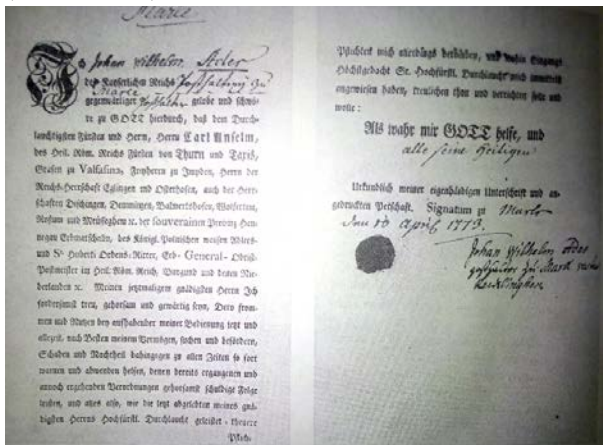 Marle
Ich Johan Wilhelm Ader
der Kayserlichen Reichs Posthaltung zu
Marle
gegenwärtiger Posthalter gelobe und schwö-
re zu GOTT hierdurch, daß dem Durch-
lauchtigsten Fürsten und Herrn, Herrn Carl Anselm,
des Heil. Röm. Reichs Fürsten von Thurn und Taxis,
Grafen zu Valsassina, Freyherrn zu Impden, Herrn der
Reichs-Herrschaft Eglingen und Osterhofen, auch der Herr-
schaften Dischingen, Demmingen, Balmertshofen, Wolfertine,
Rossum und Meuseghem ꝛc. der souverainen Provinz Hen-
negau Erbmarschallen, des Königl. Polnischen weisen Adlers-
und St Huberti Ordens-Ritter, Erb- General- Obrist-
Postmeister im Heil. Röm. Reich, Burgund und denen Nie-
derlanden ꝛc. Meinen jetzmaligem gnädigsten Herrn Ich
forderjamst treu, gehorsam und gewärtig seyn, Dero from-
men und Nutzen bey aufhabender meiner Bedienung jetzt und
allezeit, nach Besten meinem Vermögen, suchen und befördern,
Schaden und Nachtheil dahingegen zu allen Zeiten so fort
warnen und abwenden helfen, denen bereits ergangenen und
annoch ergehenden Verordnungen gehorsamst schuldige Folge
leisten, und alles also, wie die letzt abgelebten meines gnä-
digsten Herrns Hochfürstl. Durchlaucht geleistet- theuere
Pflich-
Pflichten mich allerdings verbinden, und wohin Eingangs
Höchstgedacht Se. Hochfürstl. Durchlaucht mich
angewiesen haben, treulichen thun und verrichten solle und
wolle:
Als wahr mir GOTT helfe, und
alle seine Heiligen
Urkundlich meiner eigenhändigen Unterschrift und an-
gedruckten Petschaft. Signatum zu Marle
den 10 April 1773.
Johan Wilhelm Ader
posthalter zu Marl
Recklinghsen